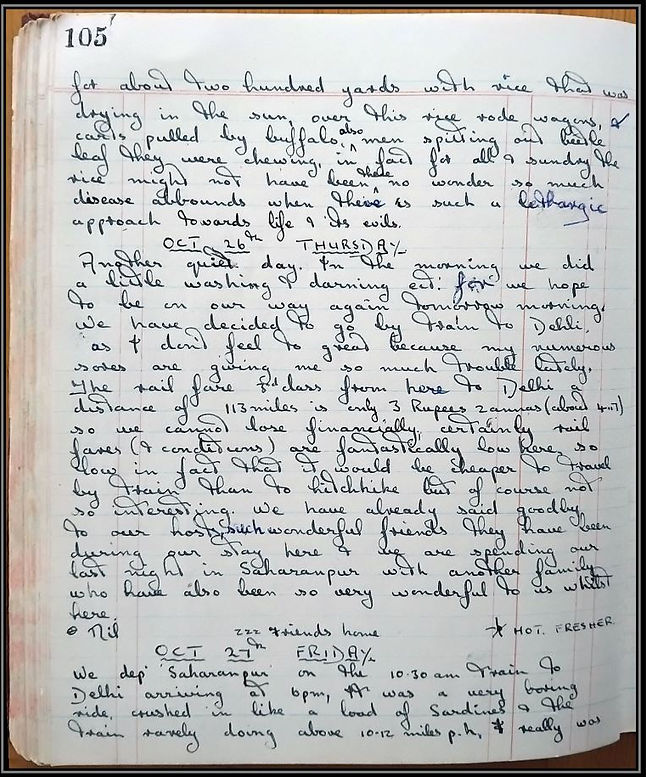 105
for about two hundred yards with rice that was
drying in the sun, over this rice rode wagons, &
carts pulled by buffalo, also men spitting out beetle
leaf they were chewing, in fact for all & sundry the
rice might not have been there no wonder so much
disease abbounds when there is such a lethargic
approach towards life & its evils.
OCT 26th THURSDAY
Another quiet day. In the morning we did
a little washing & darning ect: for we hope
to be on our way again tomorrow morning.
We have decided to go by train to Dehli,
as I don't feel to great because my numerous
sores are giving me so much trouble lately.
The rail fare 3rd class from here to Delhi a
distance of 113 miles is only 3 Rupees 2 annas (about 4-7)
so we cannot lose financially, certainly rail
fares (& conditions) are fantastically low here, so
low in fact that it would be cheaper to travel
by train than to hitchhike but of course not
so interesting. We have already said goodby
to our hosts, such wonderful friends they have been
during our stay here & we are spending our
last night in Saharanpur with another family
who have also been so very wonderful to us whilst
here.
Nil zzz Friends home HOT. FRESHER
OCT 27th FRIDAY
We dep' Saharanpur on the 10.30 am train to
Delhi arriving at 6pm, It was a very boring
ride, crushed in like a load of Sardines & the
train rarely doing above 10-12 miles p.h, it really was